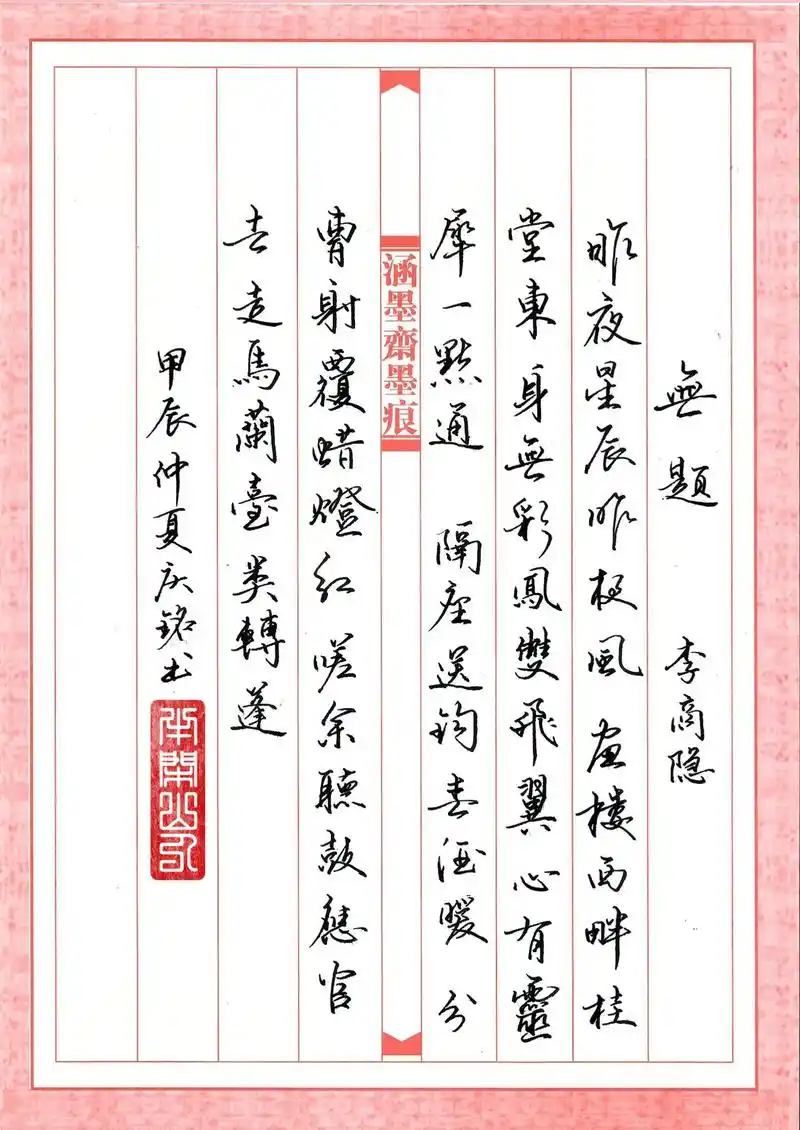 無題 李商隐
昨夜星辰昨夜風 画楼西畔桂
堂東身無彩鳳雙飛翼心有靈
犀一點通 隔座送鈎春酒暖 分
涵墨齋墨痕
曹射覆蜡燈紅 嗟余聽鼓應官
去走馬蘭臺类轉蓬
甲辰仲夏庆銘书